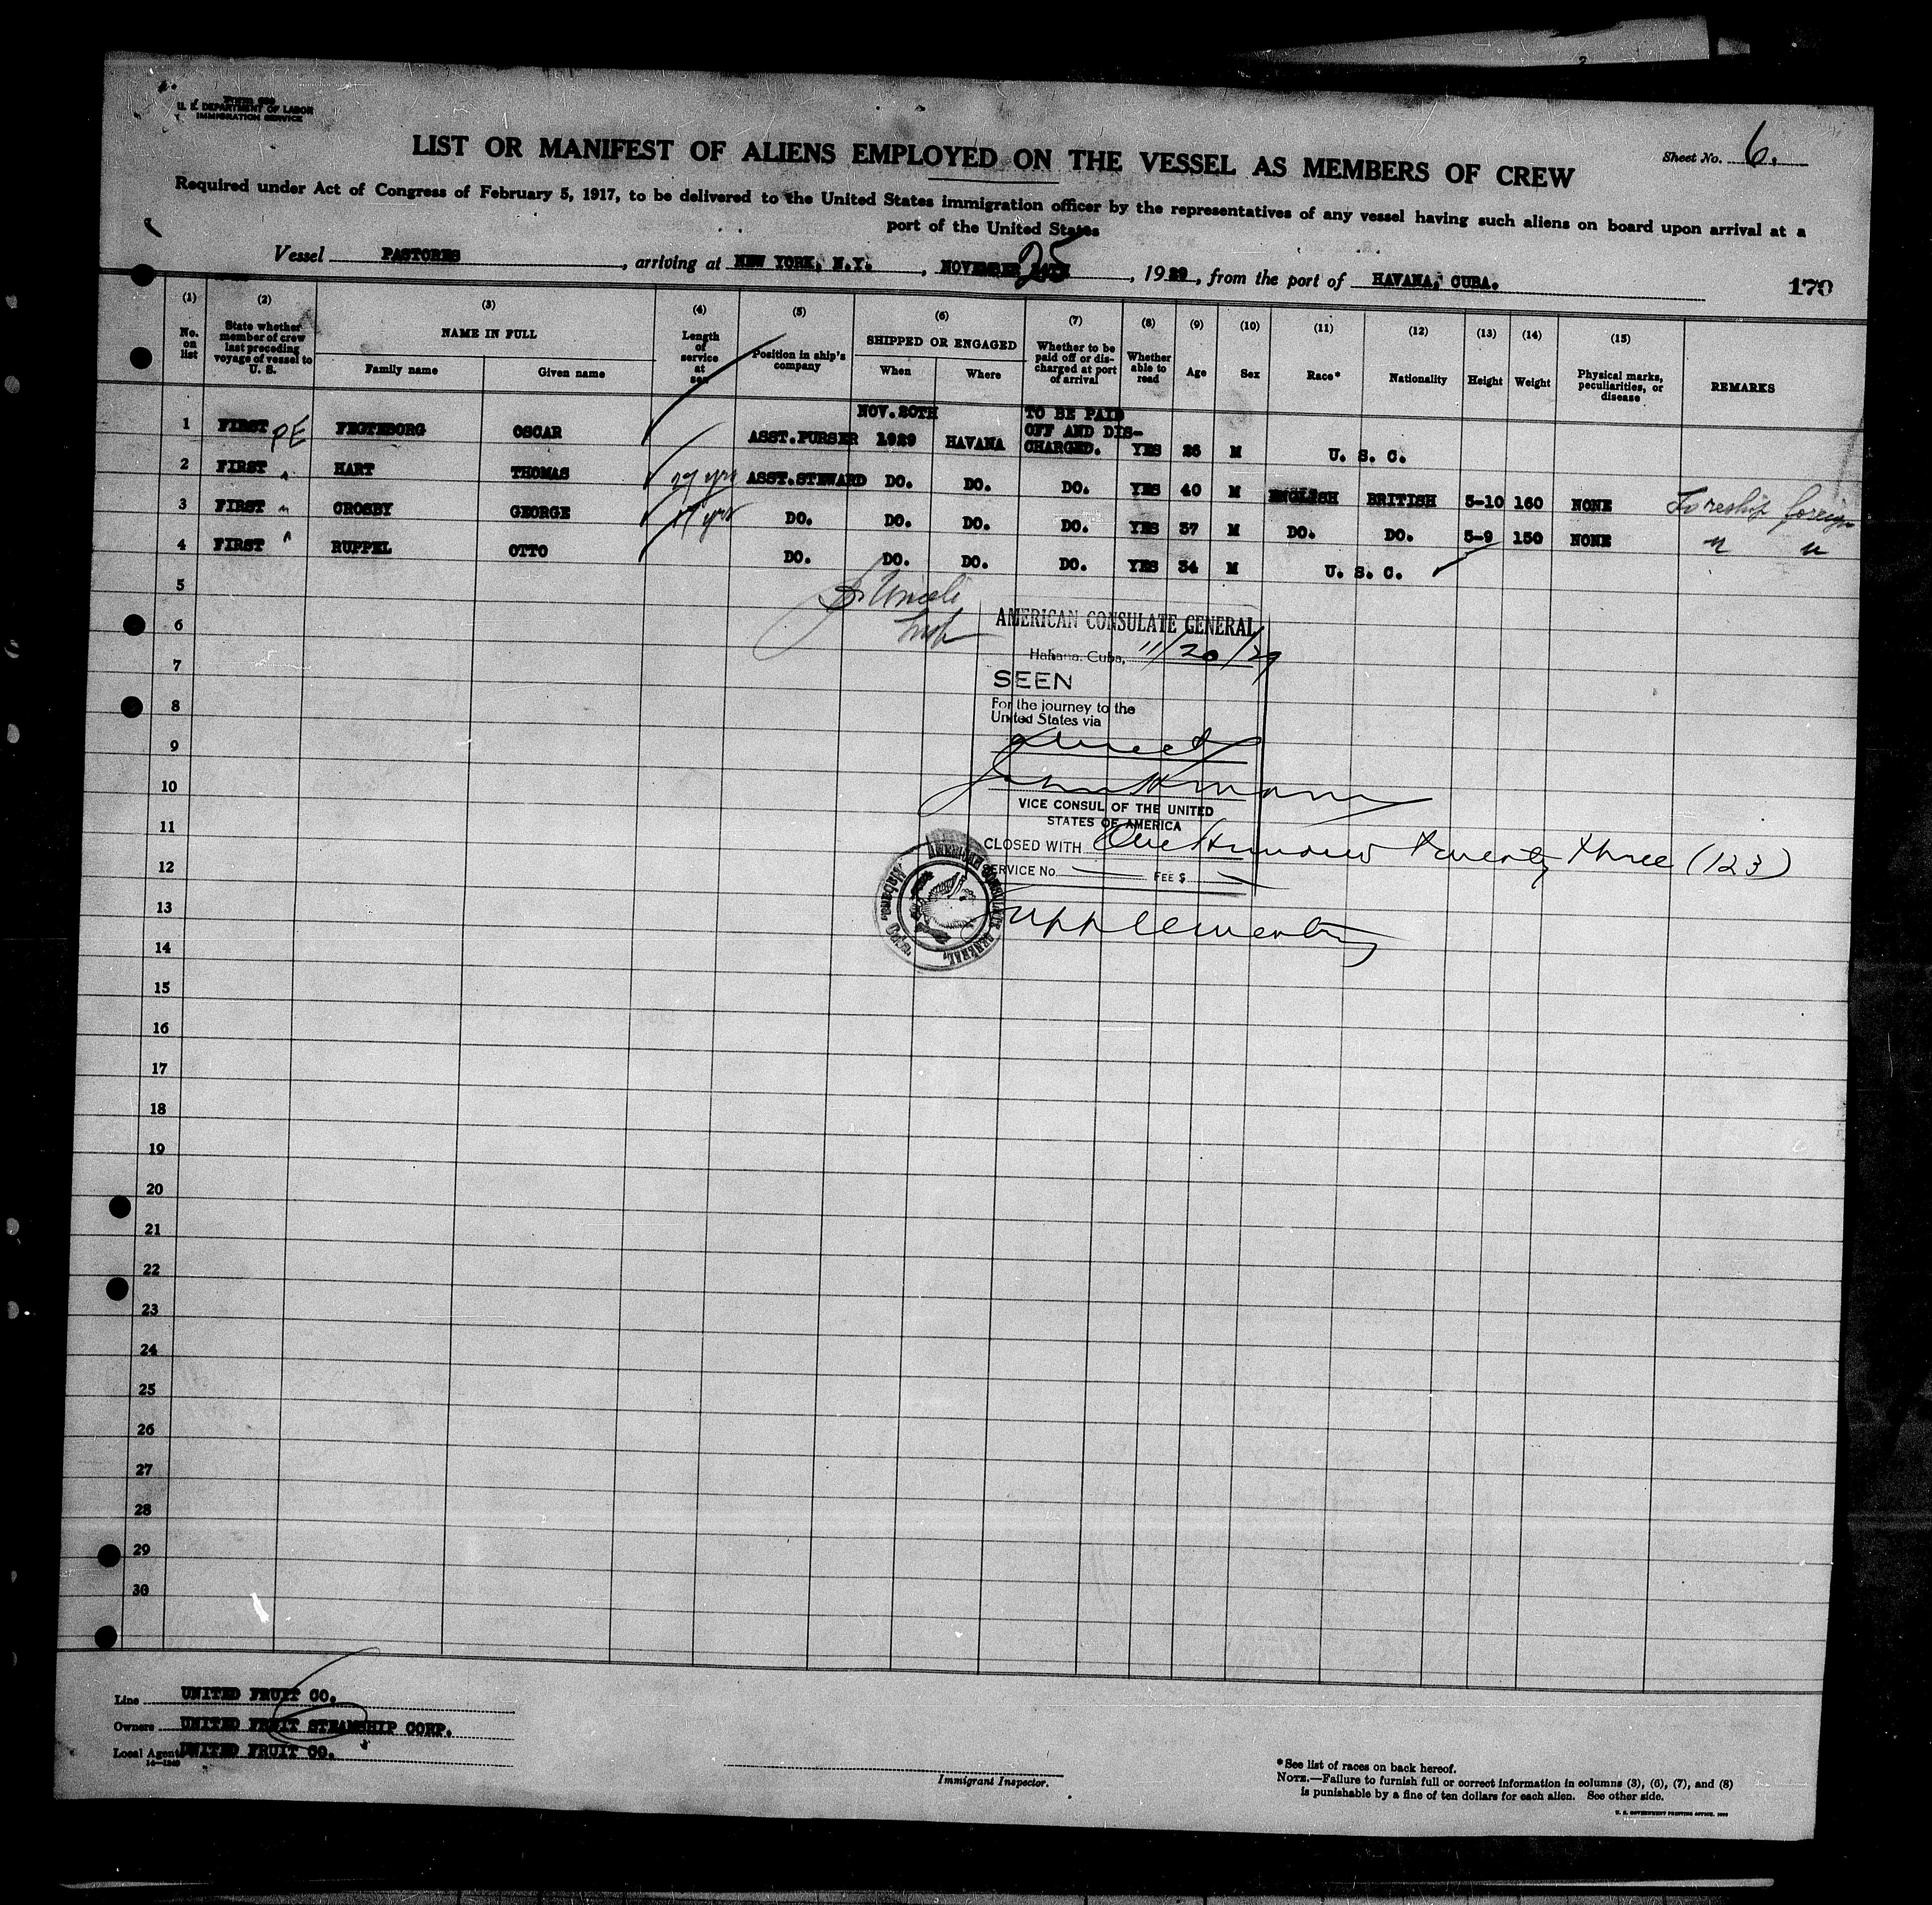 U. S. DEPARTMENT OF LABOR
IMMIGRATION SERVICE
Sheet No. 6.
LIST OR MANIFEST OF ALIENS EMPLOYED ON THE VESSEL AS MEMBERS OF CREW
Required under Act of Congress of February 5, 1917, to be delivered to the United States immigration officer by the representatives of any vessel having such aliens on board upon arrival at a
port of the United States
Vessel PASTORES, arriving at NEW YORK, N.Y., NOVEMBER 25, 1929, from the port of HAVANA, CUBA.
170
(1) (2) (3) (4) (5) (6) (7) (8) (9) (10) (11) (12) (13) (14) (15)
No. on list
State whether member of crew last preceding voyage of vessel to U. S.
NAME IN FULL
Family name Given name
Length of service at sea
Position in ship's company
SHIPPED OR ENGAGED
When Where
Whether to be paid off or discharged at port of arrival
Whether able to read
Age
Sex
Race*
Nationality
Height
Weight
Physical marks, peculiarities, or disease
REMARKS
1 FIRST PE FEGTEBORG OSCAR ASST.PURSER NOV.20TH 1929 HAVANA TO BE PAID OFF AND DIS-CHARGED. YES 26 M U. S. C.
2 FIRST " HART THOMAS 27 yrs ASST.STEWARD DO. DO. DO. YES 40 M ENGLISH BRITISH 5-10 160 NONE To reship foreign
3 FIRST " CROSBY GEORGE 17 yrs DO. DO. DO. DO. YES 37 M DO. DO. 5-9 150 NONE " "
4 FIRST " RUPPEL OTTO DO. DO. DO. DO. YES 34 M U. S. C.
5
6
7
8
9
10
11
12
13
14
15
16
17
18
19
20
21
22
23
24
25
26
27
28
29
30
AMERICAN CONSULATE GENERAL
Habana, Cuba, 11/20/29
SEEN
For the journey to the
United States via
direct
VICE CONSUL OF THE UNITED
STATES OF AMERICA
CLOSED WITH One Hundred twenty three (123)
SERVICE No. FEE $
Supplementary
AMERICAN CONSULATE GENERAL, Habana, Cuba.
Line UNITED FRUIT CO.
Owners UNITED FRUIT STEAMSHIP CORP.
Local Agents UNITED FRUIT CO.
14—1240
Immigrant Inspector.
*See list of races on back hereof.
NOTE.—Failure to furnish full or correct information in columns (3), (6), (7), and (8)
is punishable by a fine of ten dollars for each alien. See other side.
U. S. GOVERNMENT PRINTING OFFICE